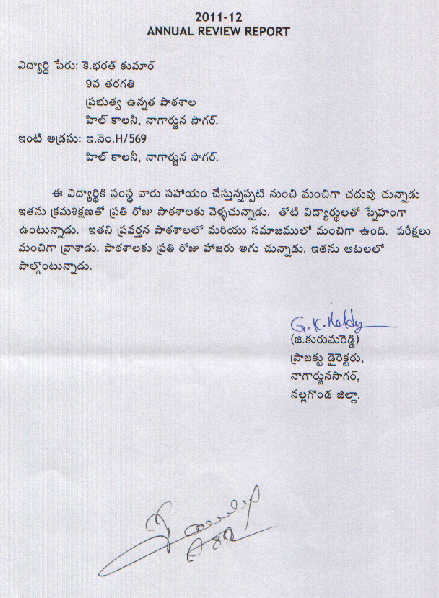 2011-12
ANNUAL REVIEW REPORT
విద్యార్థి పేరు: కె.భరత్ కుమార్
9వ తరగతి
ప్రభుత్వ ఉన్నత పాఠశాల
హిల్ కాలనీ, నాగార్జున సాగర్.
ఇంటి అడ్రసు: ఇ.నెం.H/569
హిల్ కాలనీ, నాగార్జున సాగర్.
ఈ విద్యార్థికి సంస్థ వారు సహాయం చేస్తున్నప్పటి నుంచి మంచిగా చదువు చున్నాడు
ఇతను క్రమశిక్షణతో ప్రతి రోజు పాఠశాలకు వెళ్ళచున్నాడు. తోటి విద్యార్థులతో స్నేహంగా
ఉంటున్నాడు. ఇతని ప్రవర్తన పాఠశాలలో మరియు సమాజములో మంచిగా ఉంది. పరీక్షలు
మంచిగా వ్రాశాడు. పాఠశాలకు ప్రతి రోజు హాజరు అగు చున్నాడు. ఇతను ఆటలలో
పాల్గొంటున్నాడు.
G.K.Reddy
(జి.కురుమరెడ్డి)
ప్రాజక్టు డైరెక్టరు,
నాగార్జునసాగర్,
నల్లగొండ జిల్లా.